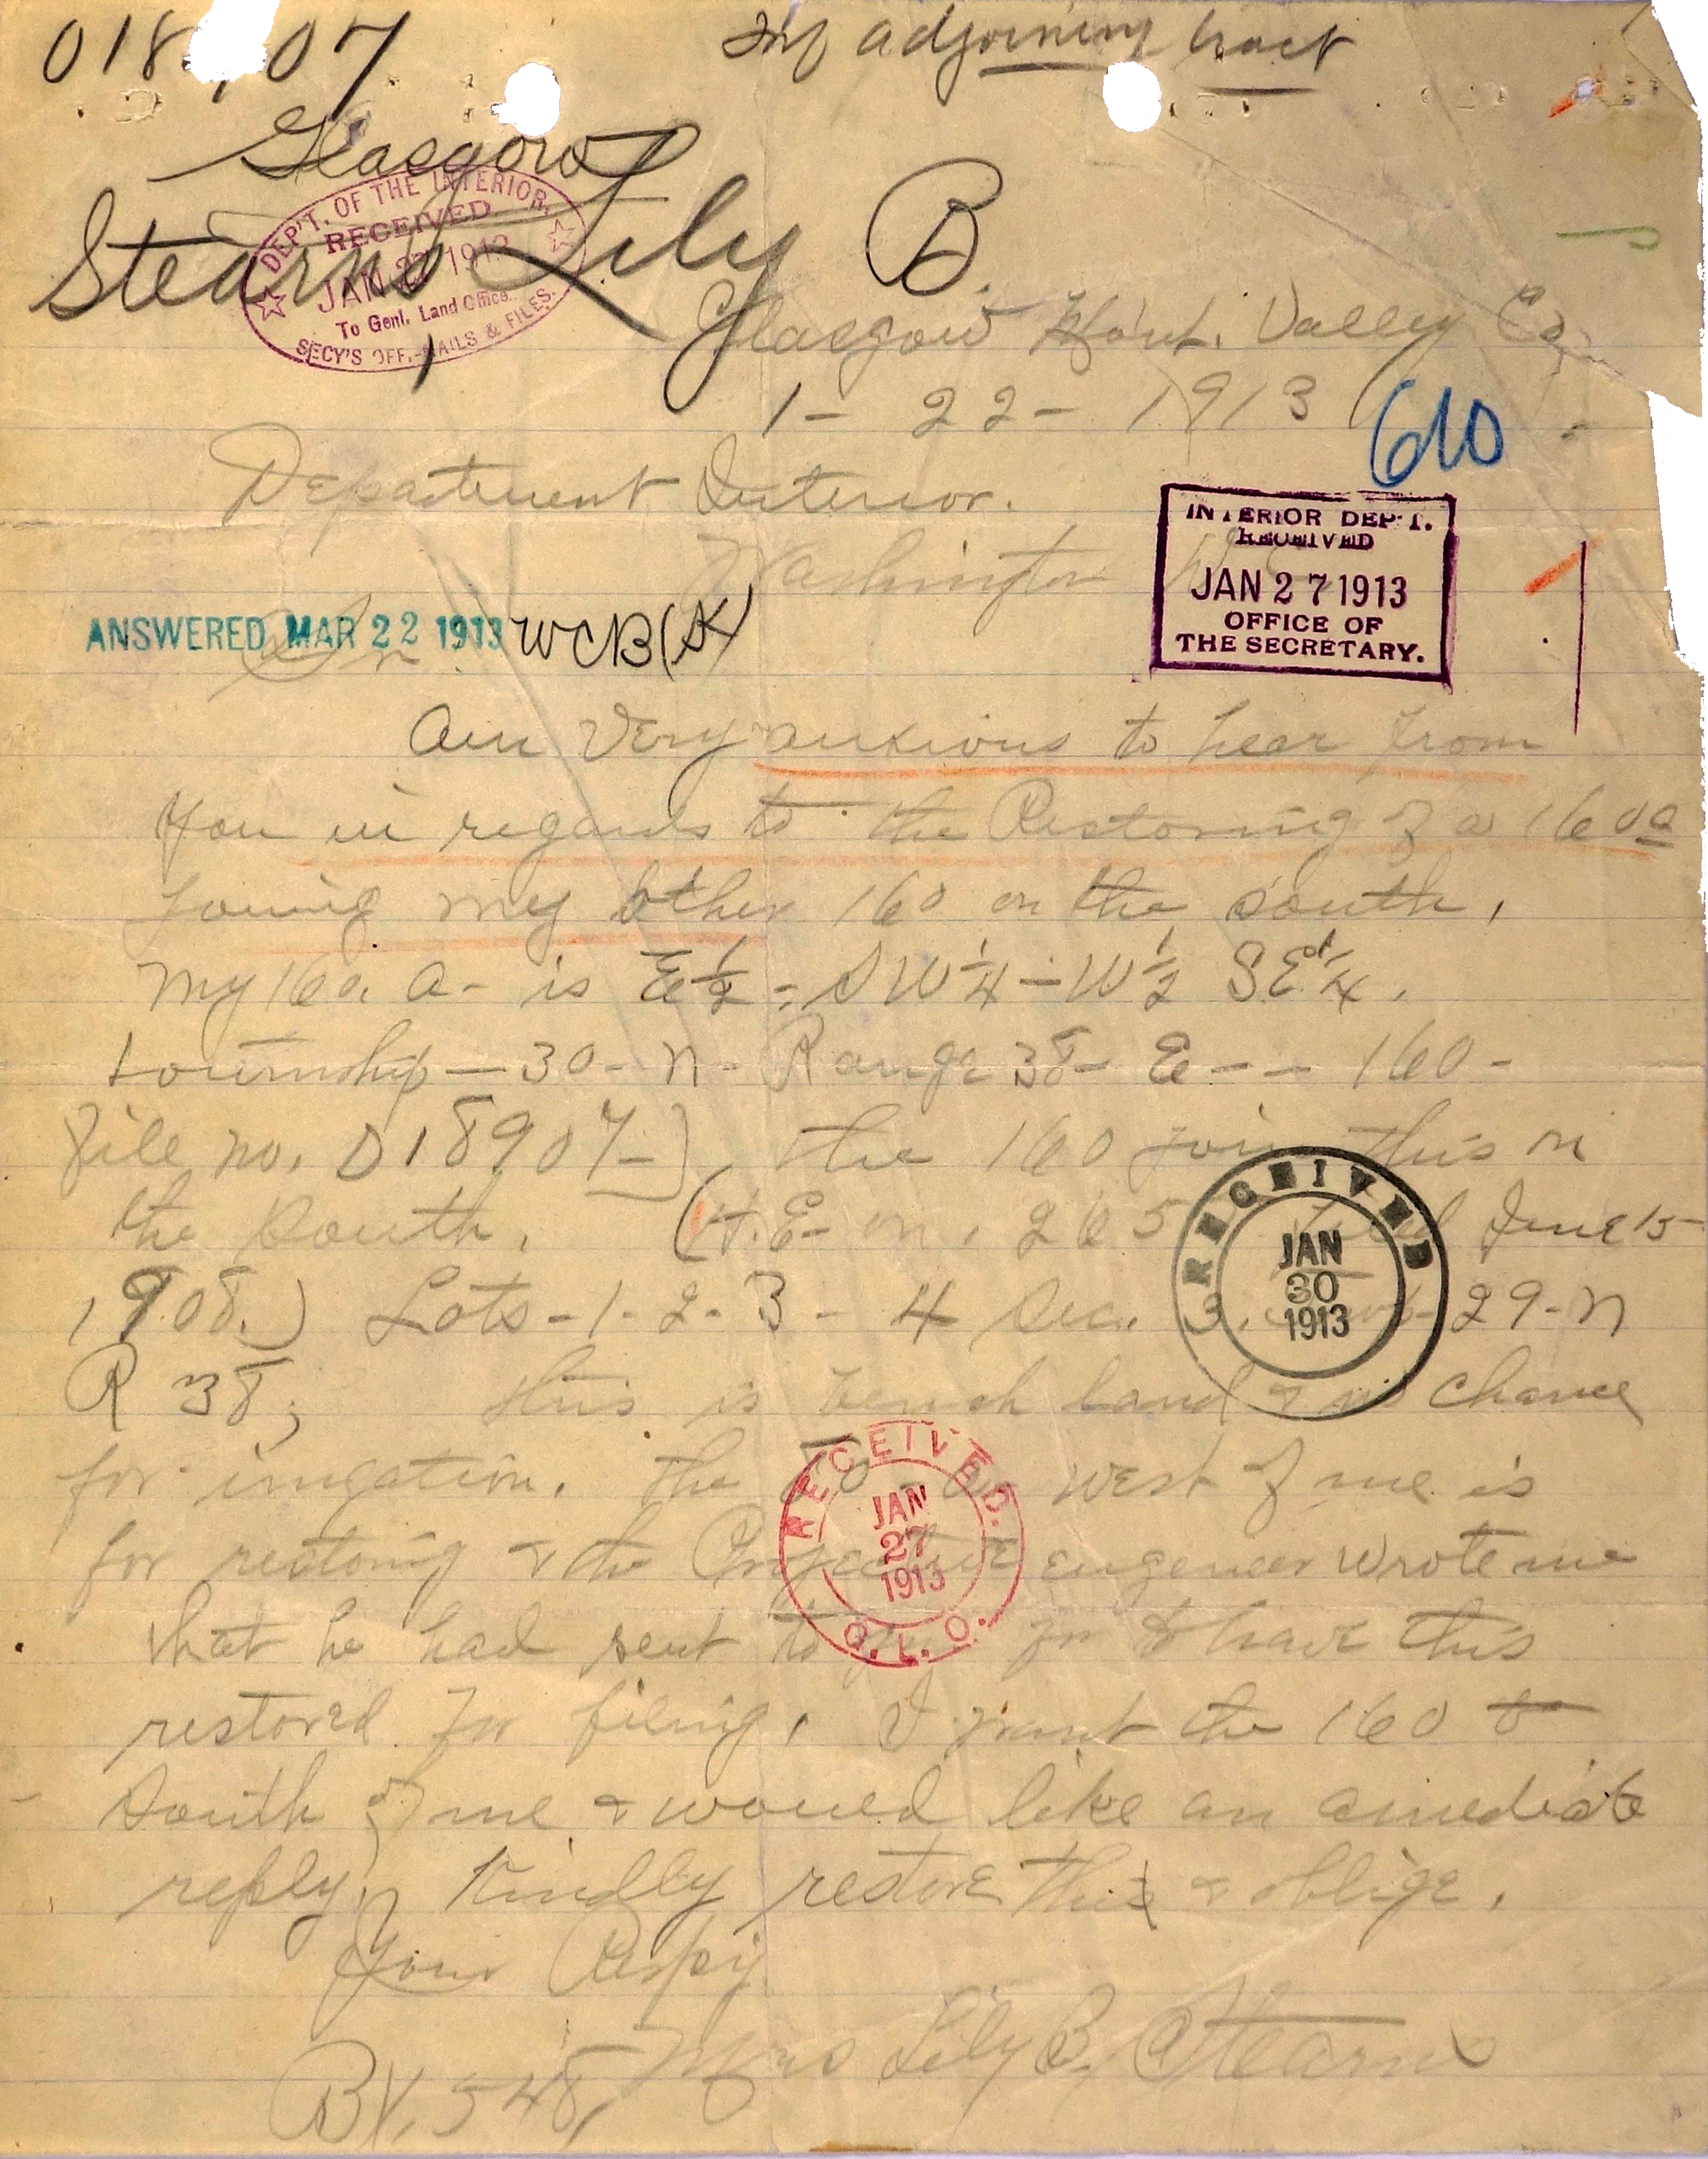 018 07
Inf adjoining tract
Glasgow
Stearns Lily B.
DEP'T. OF THE INTERIOR,
RECEIVED
JAN 27 1913
To Genl. Land Office.
SECY'S OFF.-MAILS & FILES.
Glasgow Mont. Valley Co
1- 22- 1913
610
Department Interior.
Washington
INTERIOR DEP'T.
RECEIVED
JAN 27 1913
OFFICE OF
THE SECRETARY.
ANSWERED MAR 22 1913 WCB(SK)
Sir
Am Very anxious to hear from
you in regards to the Restoring of a 160 a
joining my other 160 on the south,
my 160. a- is E 1/2 - SW 1/4 - W 1/2 SE 1/4.
township - 30- N- Range 38- E - - 160-
File no. 018907- the 160 join this on
the South. (H.E- 265 June 15-
1908.) Lots-1-2-3-4 Sec. 3. 29-N
R 38; this is bench land & no chance
for irrigation. The west of me is
for restoring & the engeneer wrote me
that he had sent to you for to have this
restored for filing, I want the 160 to
South of me & would like an amediate
reply, Kindly restore this & oblige.
Your Respy
Mrs Lily B. Stearns
BX. 548,
RECEIVED
JAN
30
1913
RECEIVED.
JAN
27
1913
G. L. O.